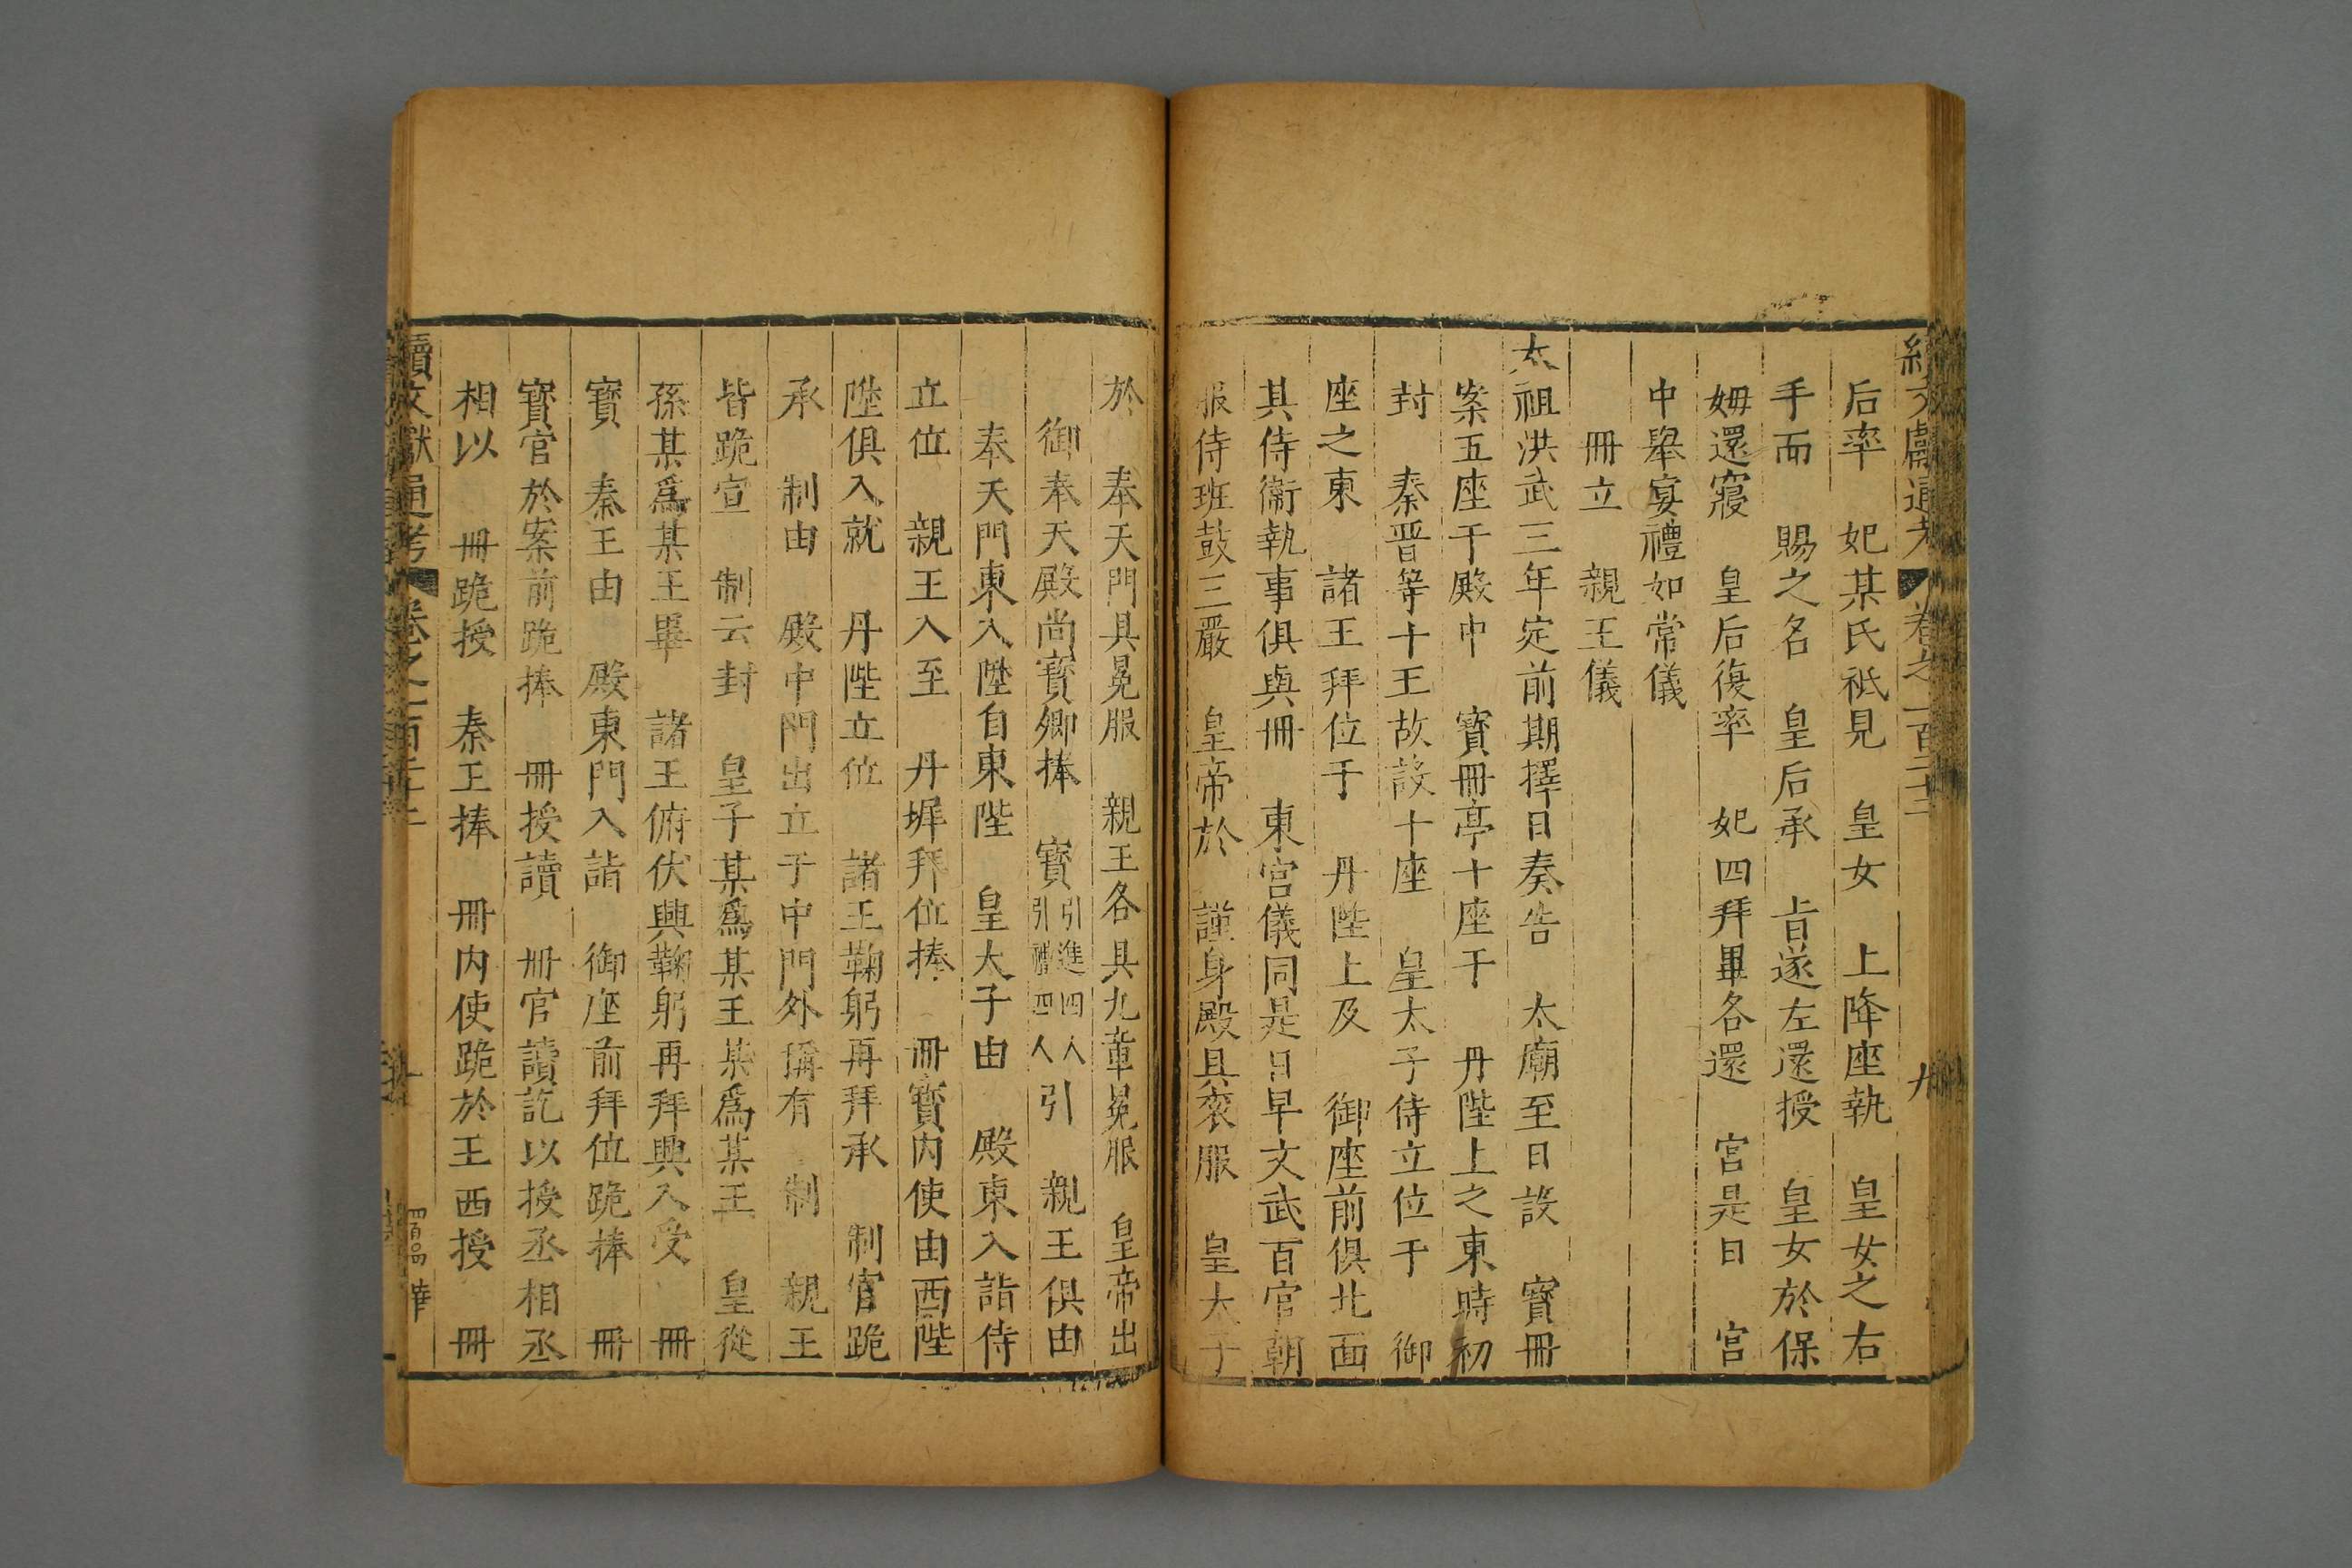 后率 妃某氏祗見 皇女 上降座執 皇女之右
手而 賜之名 皇后承 旨遂左還授 皇女於保
姆還寢 皇后復率 妃四拜畢各還 宮是日 宮
中舉宴禮如常儀
冊立 親王儀
太祖洪武三年定前期擇日奏告 太廟至日設 寶冊
案五座于殿中 寶冊亭十座于 丹陛上之東時初
封 秦晋等十王故設十座 皇太子侍立位于 御
座之東 諸王拜位于 丹陛上及 御座前俱北面
其侍衞執事俱與冊 東宮儀同是日早文武百官朝
服侍班鼓三嚴 皇帝於 謹身殿具袞服 皇太子
於 奉天門具冕服 親王各具九章冕服 皇帝出
御奉天殿尚寶卿捧 寶引進四人引禮四人引 親王俱由
奉天門東入陞自東陛 皇太子由 殿東入詣侍
立位 親王入至 丹墀拜位捧 冊寶内使由西陛
陞俱入就 丹陛立位 諸王鞠躬再拜承 制官跪
承 制由 殿中門出立于中門外稱有 制 親王
皆跪宣 制云封 皇子某爲某王某爲某王 皇從
孫某爲某王畢 諸王俯伏興鞠躬再拜興入受 冊
寶 秦王由 殿東門入詣 御座前拜位跪捧 冊
寶官於案前跪捧 冊授讀 冊官讀訖以授丞相丞
相以 冊跪授 秦王捧 冊内使跪於王西授 冊
續文獻通考 卷之一百二十二